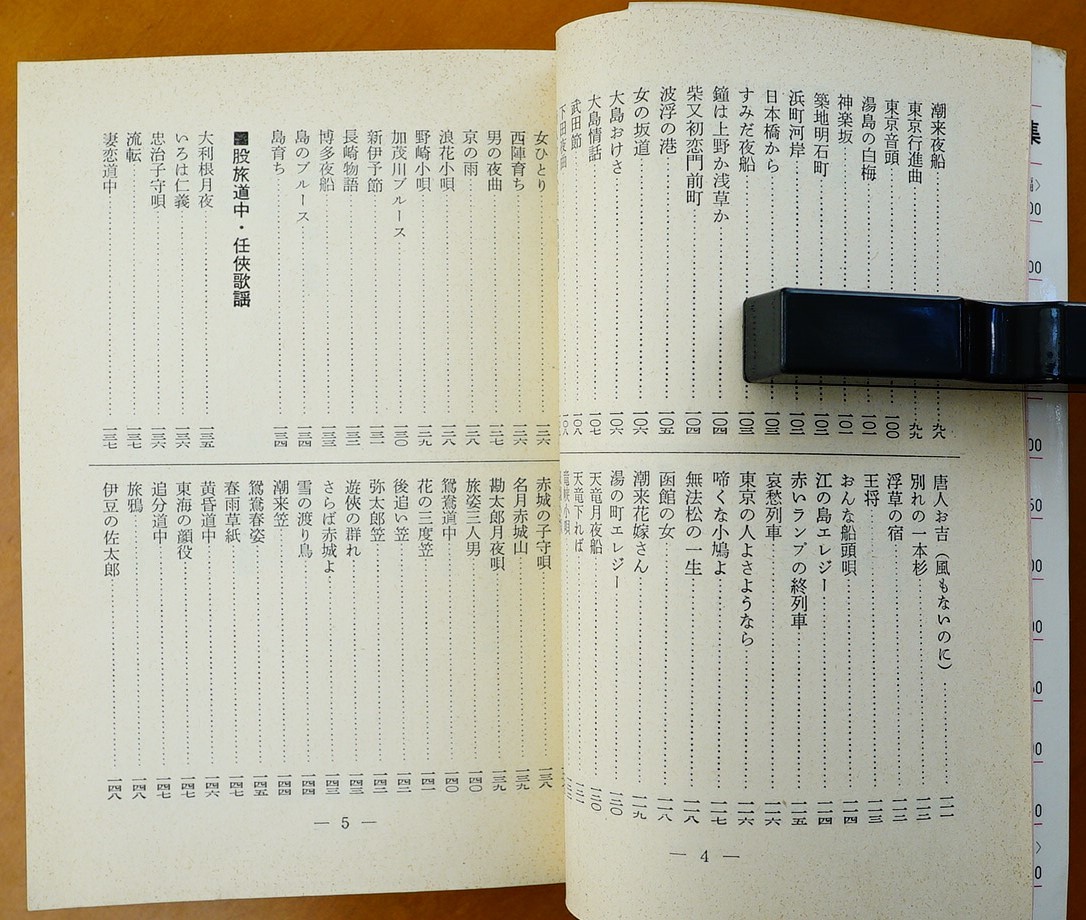 潮来夜船……九八
東京行進曲……九九
東京音頭……一〇〇
湯島の白梅……一〇一
神楽坂……一〇一
築地明石町……一〇二
浜町河岸……一〇二
日本橋から……一〇三
すみだ夜船……一〇三
鐘は上野か浅草か……一〇四
柴又初恋門前町……一〇四
波浮の港……一〇五
女の坂道……一〇六
大島おけさ……一〇六
大島情話……一〇七
武田節……一〇八
下田夜曲
唐人お吉（風もないのに）……一一一
別れの一本杉……一一二
浮草の宿……一一二
王将……一一三
おんな船頭唄……一一四
江の島エレジー……一一四
赤いランプの終列車……一一五
哀愁列車……一一六
東京の人よさようなら……一一六
啼くな小鳩よ……一一七
無法松の一生……一一八
函館の女……一一八
潮来花嫁さん……一一九
湯の町エレジー……一二〇
天竜月夜船……一二〇
天竜下れば……一二一
竜峡小唄
— 4 —
女ひとり……一二六
西陣育ち……一二六
男の夜曲……一二七
京の雨……一二八
浪花小唄……一二八
野崎小唄……一二九
加茂川ブルース……一三〇
新伊予節……一三一
長崎物語……一三二
博多夜船……一三三
島のブルース……一三四
島育ち……一三四
股旅道中・任俠歌謡
大利根月夜……一三五
いろは仁義……一三六
忠治子守唄……一三六
流転……一三七
妻恋道中……一三七
赤城の子守唄……一三八
名月赤城山……一三九
勘太郎月夜唄……一三九
旅姿三人男……一四〇
鴛鴦道中……一四〇
花の三度笠……一四一
後追い笠……一四二
弥太郎笠……一四二
遊俠の群れ……一四三
さらば赤城よ……一四三
雪の渡り鳥……一四四
潮来笠……一四四
鴛鴦春姿……一四五
春雨草紙……
黄昏道中……一四六
東海の顔役……一四七
追分道中……一四七
旅鴉……一四八
伊豆の佐太郎……一四八
— 5 —
集